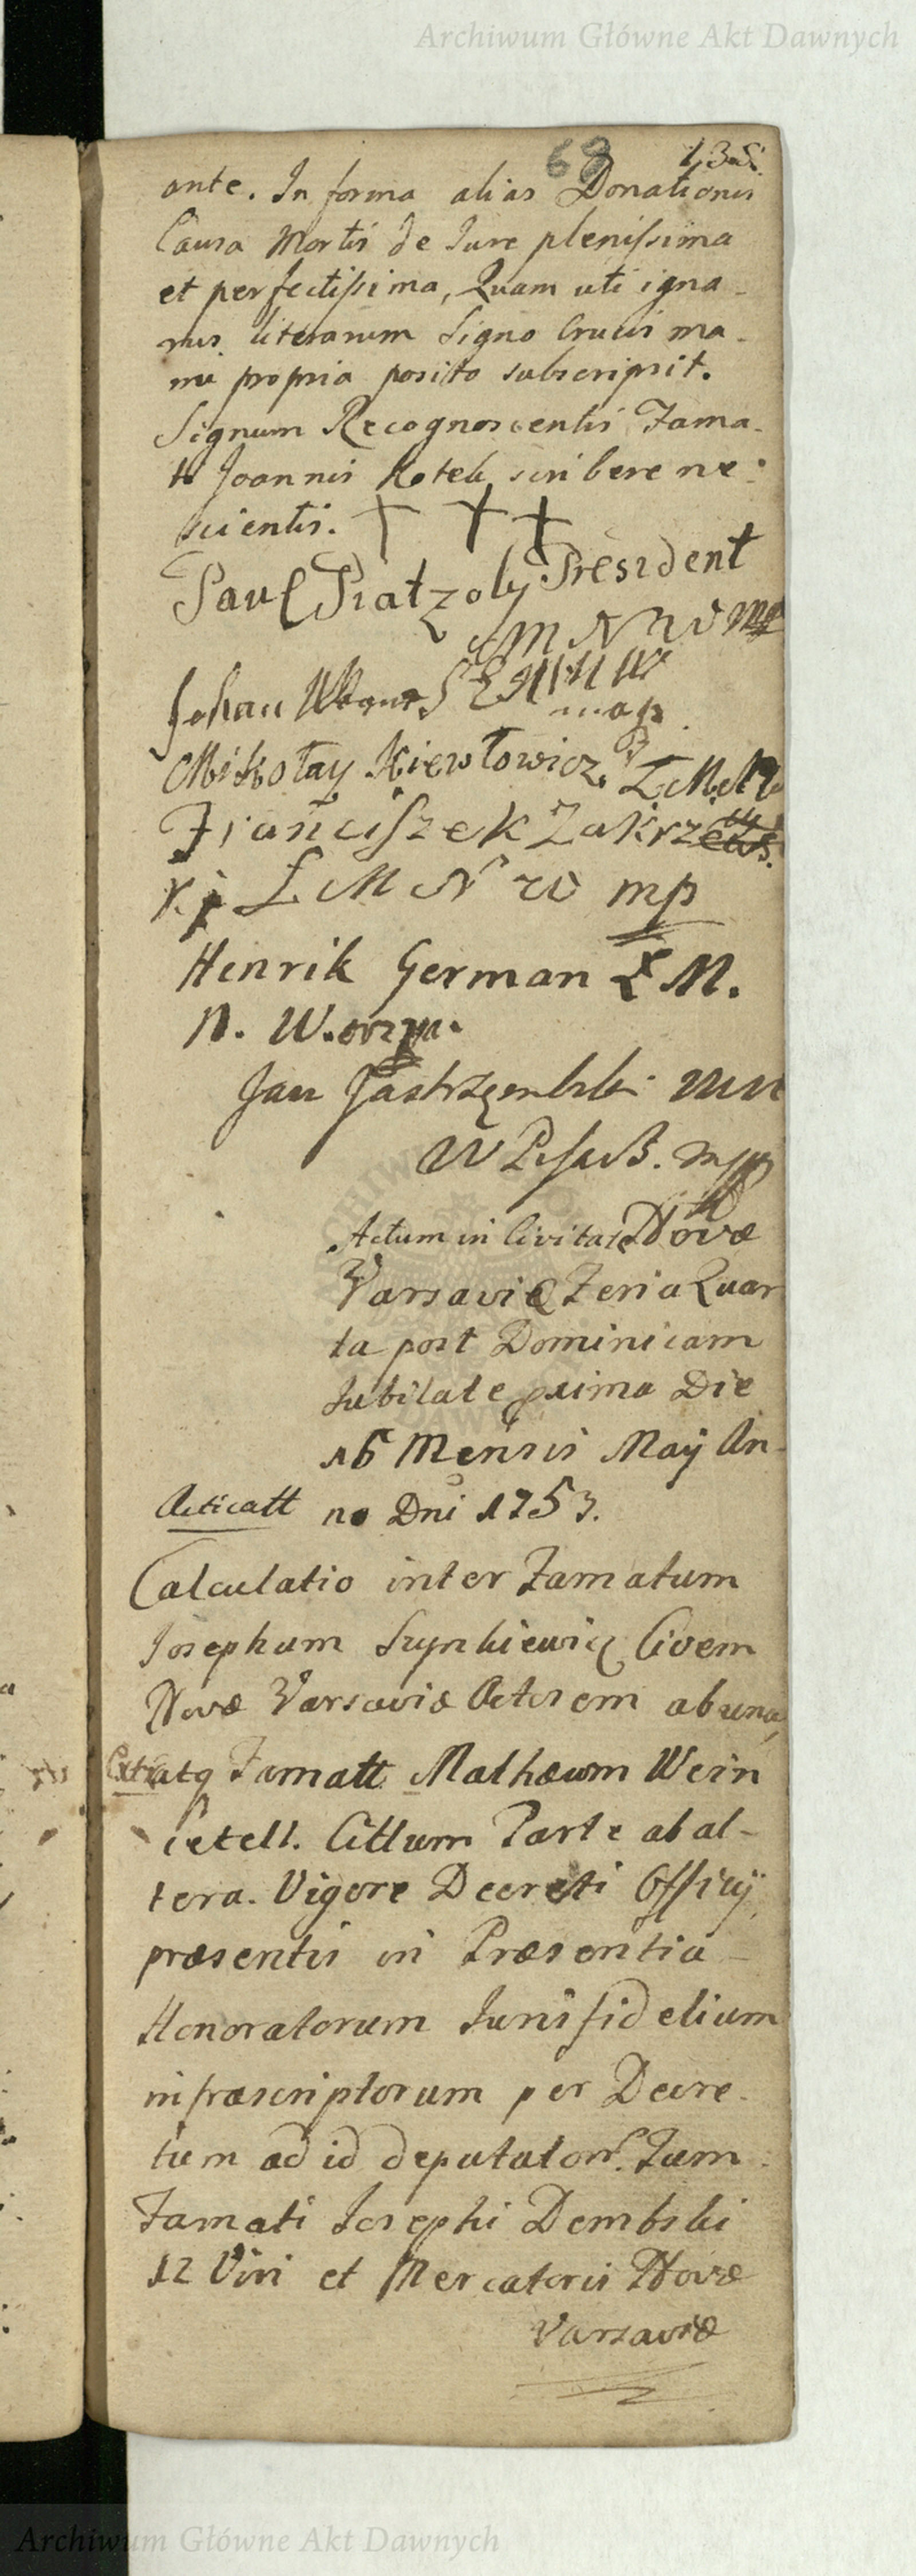 Archiwum Główne Akt Dawnych
68 135.
ante. In forma alias Donationis
Causa Mortis de Jure plenissima
et perfectissima, Quam uti igna-
rus literarum Signo Crucis ma-
nu propria posito subscripsit.
Signum Recognoscentis Fama-
ti Joannis Koteli scribere ne-
scientis. + + +
Paul Piatzoly President
M N W mp
Johan
Mikołay Kiewłowicz Ł M N W
Franciszek Zakrzews
ki Ł M N W mp
Henrik German Ł M.
N. W.
Jan Jastrzęmbski MN
W mp
Actum in Civitate Novæ
Varsaviæ Feria Quar
ta post Dominicam
Jubilate prima Die
16 Mensis Maÿ An-
Acticatt no Dni 1753.
Calculatio inter Famatum
Josephum Civem
Novæ Varsaviæ Actorem ab una,
atq Famatt Mathæum Wein
cetell. Cittum Parte ab al-
tera. Vigore Decreti Officÿ
præsentis in Præsentia
Honoratorum Jurisfidelium
infrascriptorum per Decre-
tum ad id deputator. Tum
Famati Josephi Dembski
12 Viri et Mercatoris Novæ
Varsaviæ
Archiwum Główne Akt Dawnych